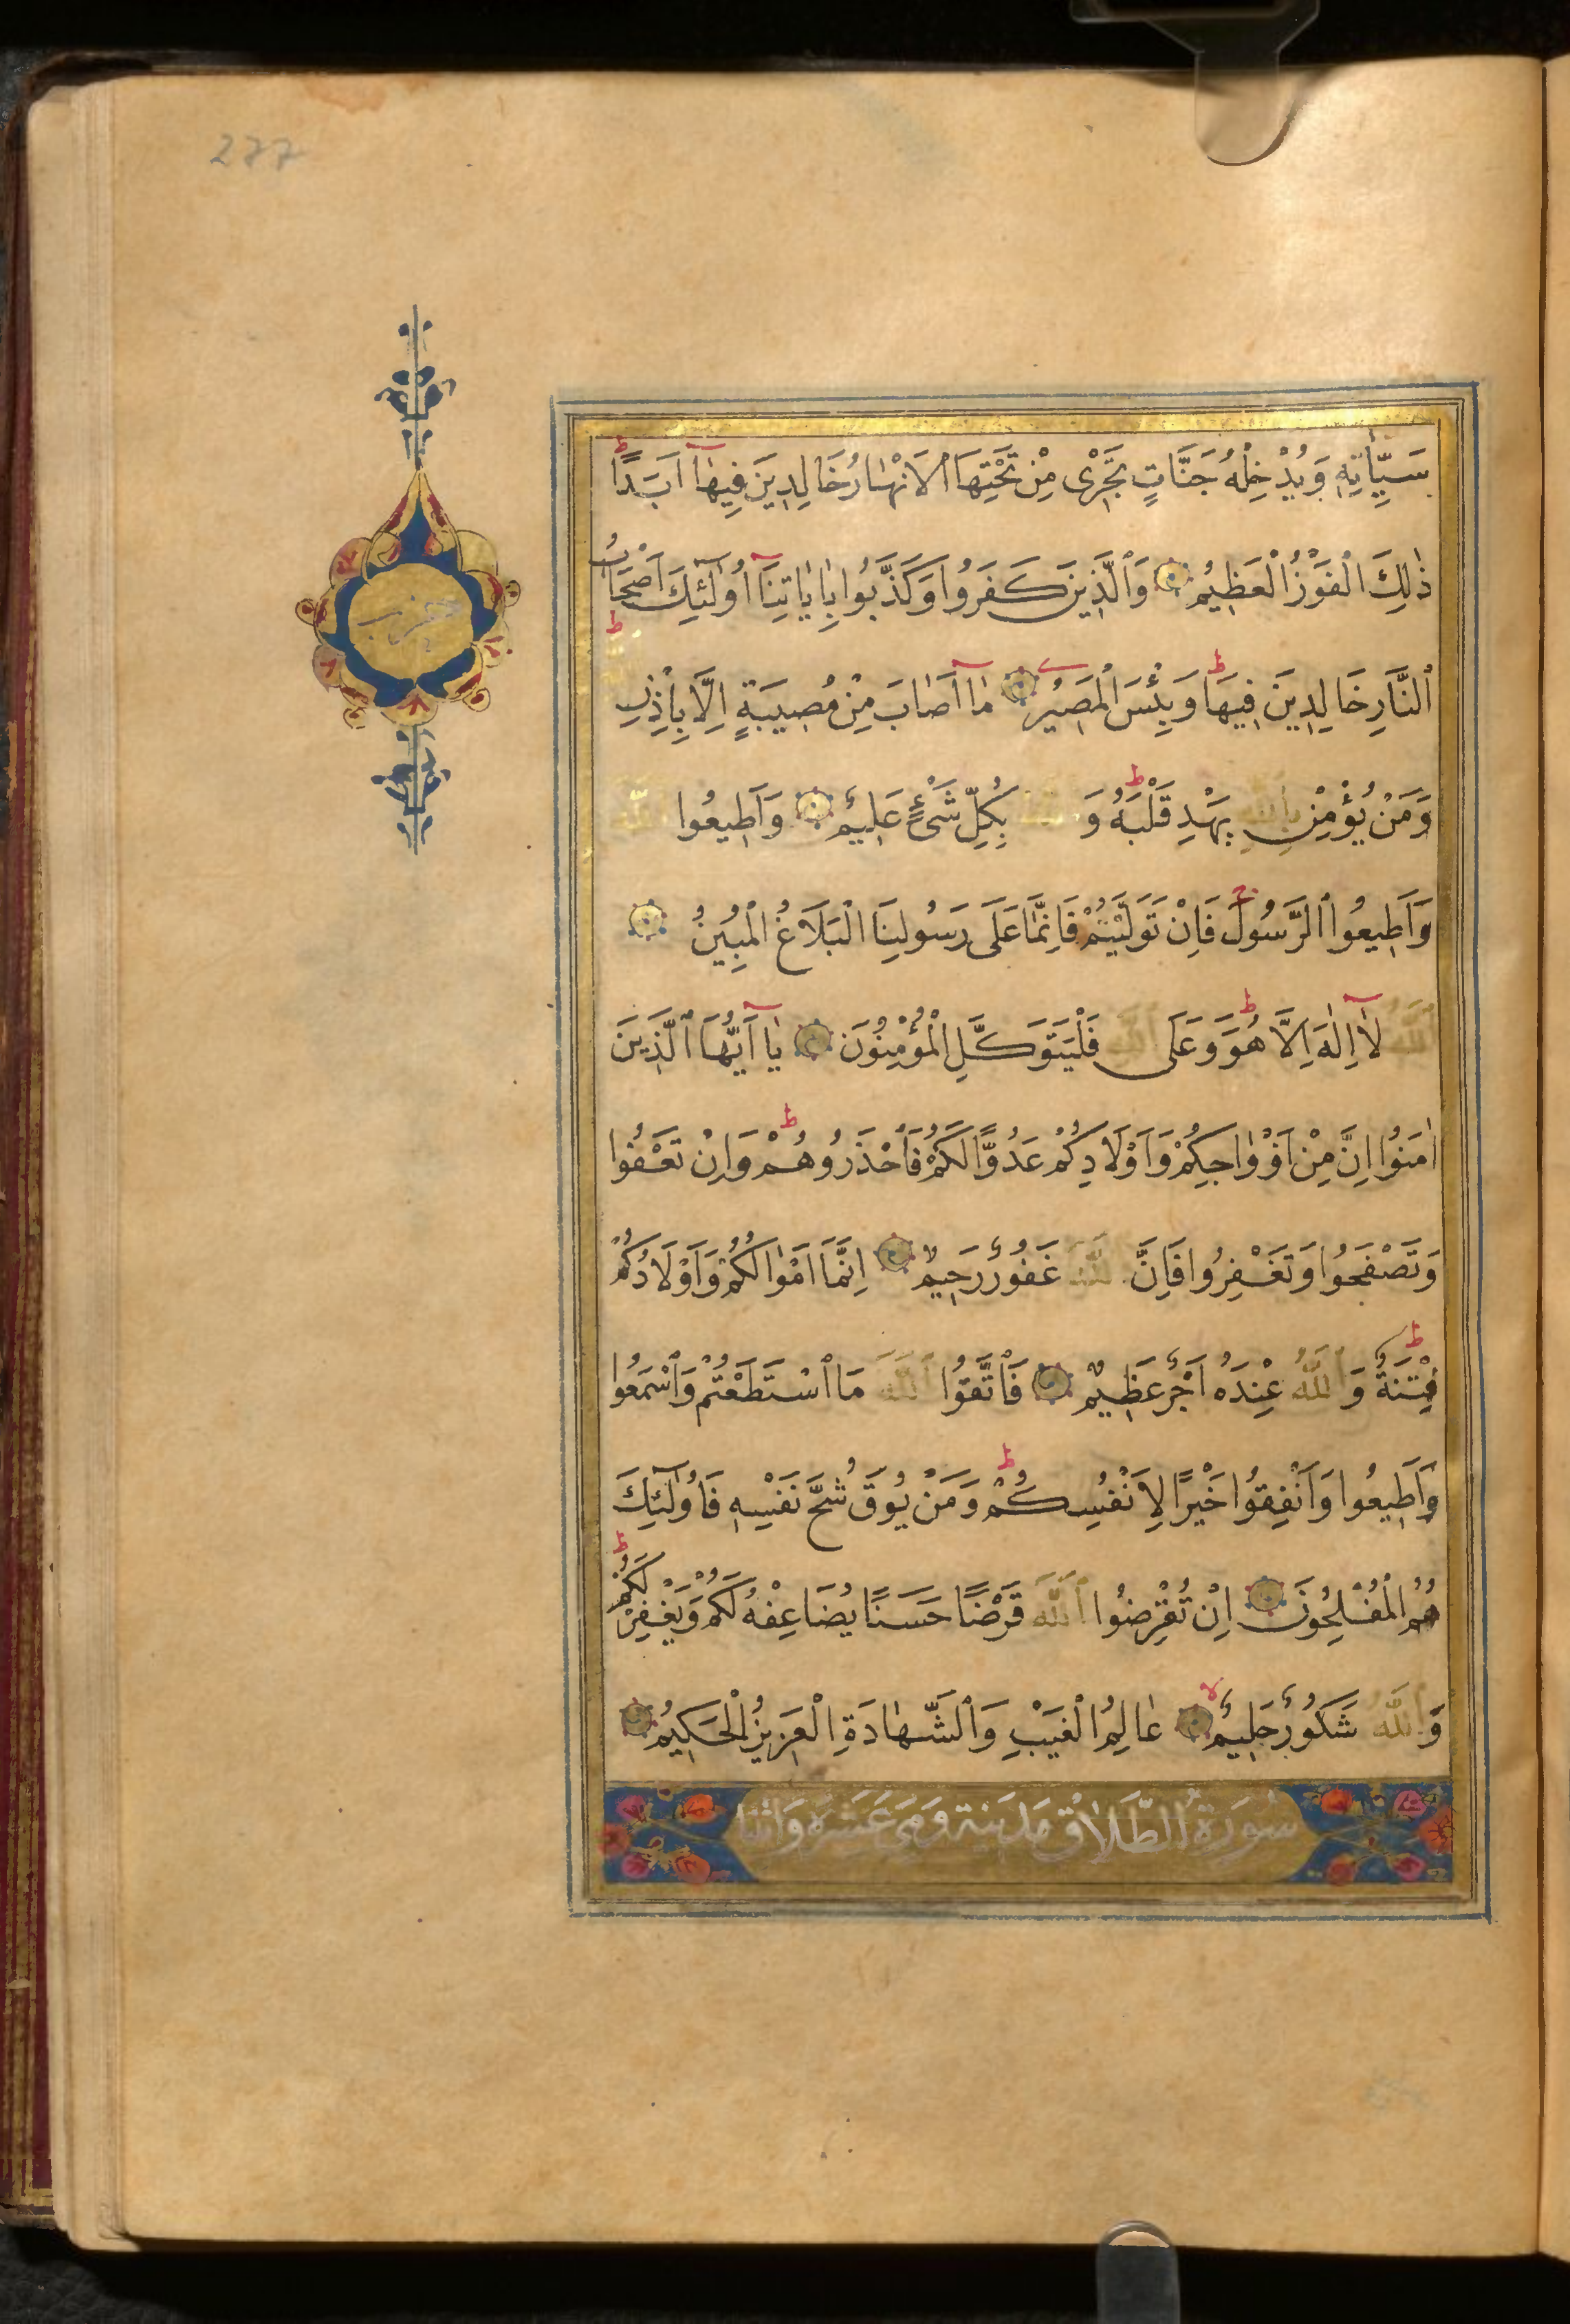 277
حزب
سَيِّاٰتِهِ وَيُدْخِلْهُ جَنَّاتٍ تَجْرٖى مِنْ تَحْتِهَا ٱلْاَنْهَارُ خَالِدٖينَ فِيهَآ اَبَدًا ط
ذٰلِكَ الْفَوْزُ الْعَظِيمُ وَٱلَّذِينَ كَفَرُوا وَكَذَّبُوا بِاٰيَاتِنَآ اُولٰٓئِكَ اَصْحَابُ
ٱلنَّارِ خَالِدِينَ فِيهَا ط وَبِئْسَ الْمَصِيرُ مَآ اَصَابَ مِنْ مُصِيبَةٍ اِلَّا بِاِذْنِ ط
وَمَنْ يُؤْمِنْ بِٱللّٰهِ يَهْدِ قَلْبَهُ ط وَ بِكُلِّ شَىْءٍ عَلِيمٌ وَاَطِيعُوا ٱللّٰهَ
وَاَطِيعُوا ٱلرَّسُولَ ج فَاِنْ تَوَلَّيْتُمْ فَاِنَّمَا عَلَى رَسُولِنَا الْبَلَاغُ الْمُبِينُ
ٱللّٰهُ لَآ اِلٰهَ اِلَّا هُوَ ط وَعَلَى ٱللّٰهِ فَلْيَتَوَكَّلِ الْمُؤْمِنُونَ يَآ اَيُّهَا ٱلَّذِينَ
اٰمَنُوا اِنَّ مِنْ اَزْوَاجِكُمْ وَاَوْلَادِكُمْ عَدُوًّا لَكُمْ فَٱحْذَرُوهُمْ ط وَاِنْ تَعْفُوا
وَتَصْفَحُوا وَتَغْفِرُوا فَاِنَّ ٱللّٰهَ غَفُورٌ رَحِيمٌ اِنَّمَا اَمْوَالُكُمْ وَاَوْلَادُكُمْ
فِتْنَةٌ ط وَٱللّٰهُ عِنْدَهُ اَجْرٌ عَظِيمٌ فَاتَّقُوا ٱللّٰهَ مَا ٱسْتَطَعْتُمْ وَٱسْمَعُوا
وَاَطِيعُوا وَاَنْفِقُوا خَيْرًا لِاَنْفُسِكُمْ ط وَمَنْ يُوقَ شُحَّ نَفْسِهِ فَاُولٰٓئِكَ
هُمُ الْمُفْلِحُونَ اِنْ تُقْرِضُوا ٱللّٰهَ قَرْضًا حَسَنًا يُضَاعِفْهُ لَكُمْ وَيَغْفِرْ لَكُمْ ط
وَٱللّٰهُ شَكُورٌ حَلِيمٌ لا عَالِمُ الْغَيْبِ وَٱلشَّهَادَةِ الْعَزِيزُ الْحَكِيمُ
سُورَةُ الطَّلَاقِ مَدَنِية وَهِيَ عَشَرَة وَاثْنَا